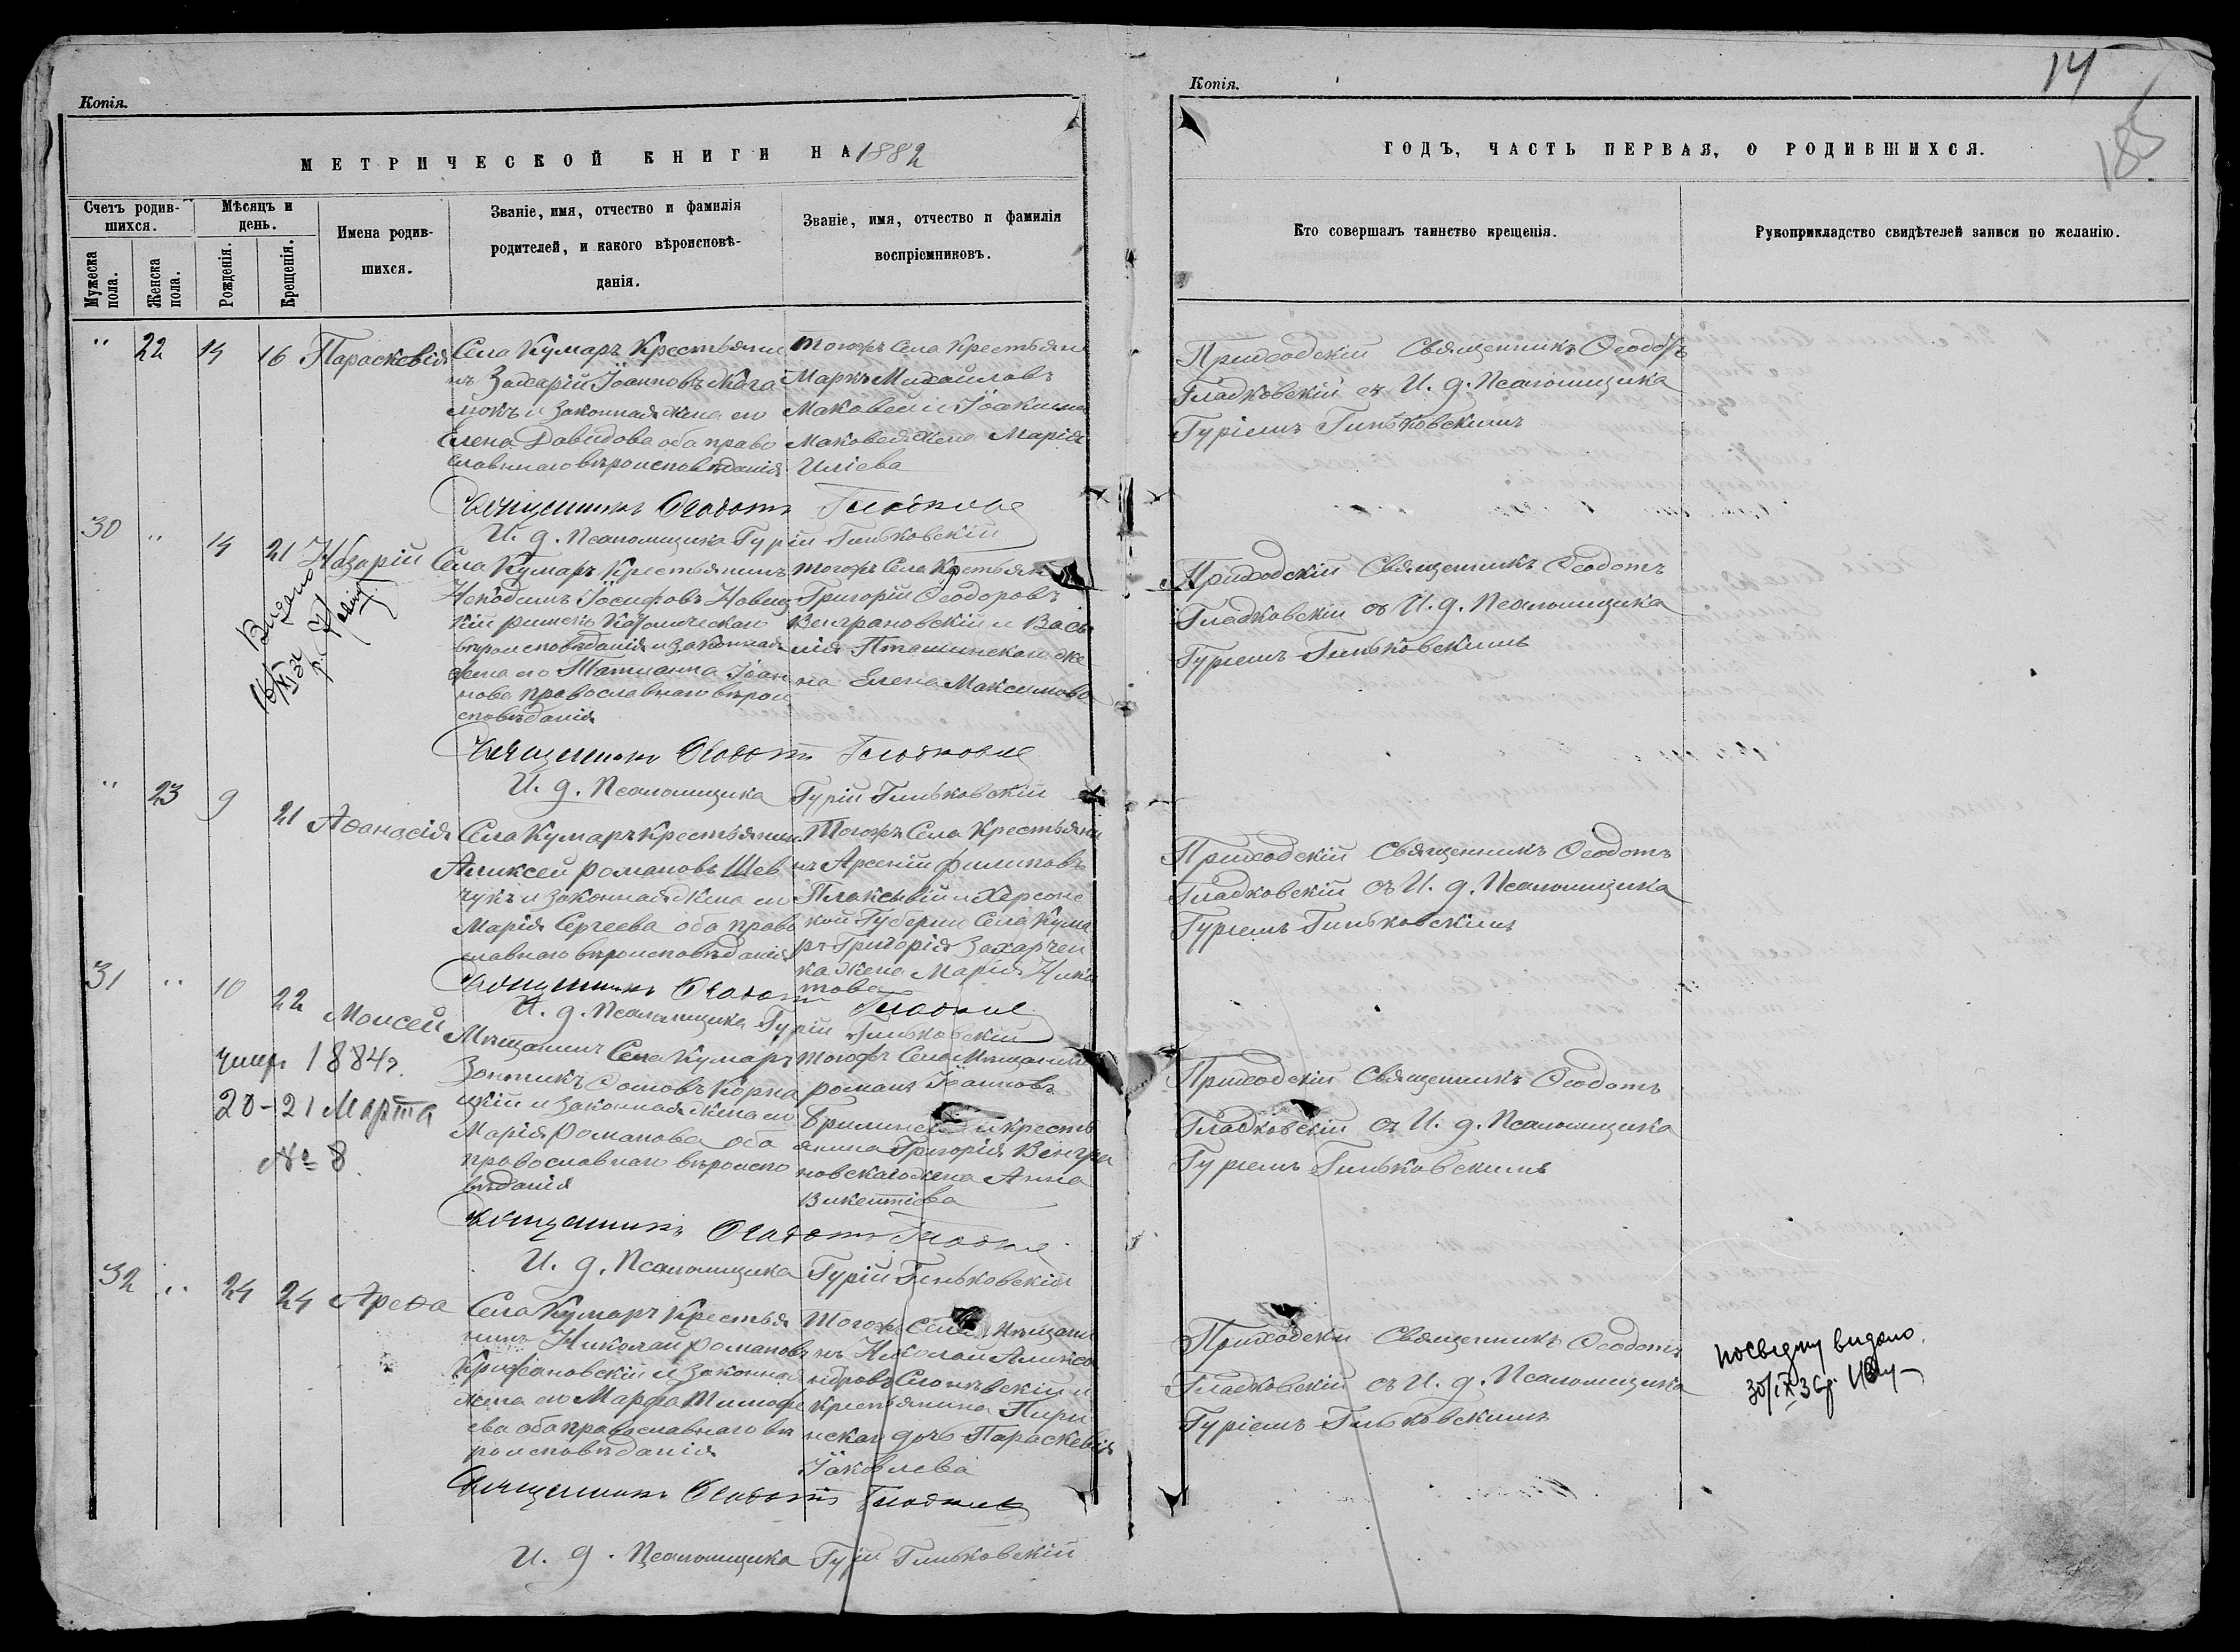 Копія.
МЕТРИЧЕСКОЙ КНИГИ НА 1882
Счетъ родив-
шихся.
Мѣсяцъ и
день.
Имена родив-
шихся.
Званіе, имя, отчество и фамилія
родителей, и какого вѣроисповѣ-
данія.
Званіе, имя, отчество и фамилія
воспріемниковъ.
Мужеска
пола.
Женска
пола.
Рожденія.
Крещенія.
" 22 14 16 Парасковія
Села Кумаръ Крестьяни
нъ Захарій Іоанновъ
и законная жена его
Елена Давидова оба право
славнаго вѣроисповѣданія
Тогожъ Села Крестьяни
Маркъ Михайловъ
Маковей и Іоакима
Маковея жена Марія
Иліева
Священникъ Ѳеодотъ Гладковс
И. д. Псаломщика Гурій Гиньковскій
30 " 14 21 Назарій
Видано
Села Кумаръ Крестьянинъ
Никодимъ Іосифовъ Новиц
кій римско Католическаго
вѣроисповѣданія и законная
жена его Татианна Іоан
нова православнаго вѣрои
сповѣданія
тогожъ Села Крестьян
Григорій Ѳеодоровъ
Венграновскій и Васи
лія Пташинскаго же
на Елена Максимова
Священникъ Ѳеодотъ Гладковс
И. д. Псаломщика Гурій Гиньковскій
" 23 9 21 Аѳанасія
Села Кумаръ Крестьянин
Алексей Романовъ Шев
чукъ и законная жена его
Марія Сергеева оба право
славнаго вѣроисповѣданія
Тогожъ Села Крестьяни
нъ Арсеній Филиповъ
Плаксывій и Херсонс
кой Губерни Села Кума
ръ Григорія Захарчен
ка жена Марія Ники
това
Священникъ Ѳеодотъ Гладков
И. д. Псаломщика Гурій Гиньковскій
31 " 10 22 Моисей
Умер 1884г.
20-21 Марта
№ 8
Мѣщанинъ Села Кумаръ
цкій и законная жена его
Марія Романова оба
православнаго вѣроиспо
вѣданія
тогожъ Села Мѣщанинъ
Романъ Іоанновъ
и кресть
янина Григорія Венгра
новскаго жена Анна
Викентіева
Священникъ Ѳеодотъ Гладков
И. д. Псаломщика Гурій Гиньковскій
32 " 24 24 Арефа
Села Кумаръ Крестья
нинъ Николай Романовъ
Крижановскій и законная
жена его Марфа Тимофе
ева оба православнаго вѣ
роисповѣданія
Тогожъ Села Мѣщани
нъ Николай Алекса
ндровъ и
крестьянина
нскаго дочь Параскевія
Іаковлева
Священникъ Ѳеодотъ Гладков
И. д. Псаломщика Гурій Гиньковскій
Копія.
14
185
ГОДЪ, ЧАСТЬ ПЕРВАЯ, О РОДИВШИХСЯ.
Кто совершалъ таинство крещенія.
Рукоприкладство свидѣтелей записи по желанію.
Приходскій Священникъ Ѳеодотъ
Гладковскій съ И. д. Псаломщика
Гуріемъ Гиньковскимъ
Приходскій Священникъ Ѳеодотъ
Гладковскій съ И. д. Псаломщика
Гуріемъ Гиньковскимъ
Приходскій Священникъ Ѳеодотъ
Гладковскій съ И. д. Псаломщика
Гуріемъ Гиньковскимъ
Приходскій Священникъ Ѳеодотъ
Гладковскій съ И. д. Псаломщика
Гуріемъ Гиньковскимъ
Приходскій Священникъ Ѳеодотъ
Гладковскій съ И. д. Псаломщика
Гуріемъ Гиньковскимъ
посвідку видано
30/IX 36р.